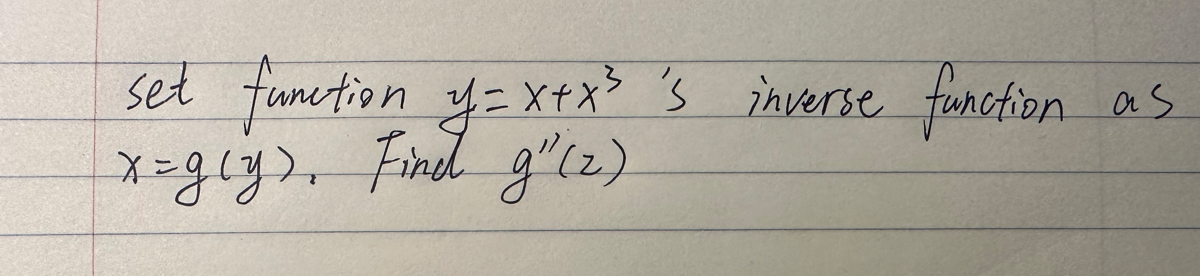 set function y=x+x³ 's inverse function as
x=g(y). Find g"(2)